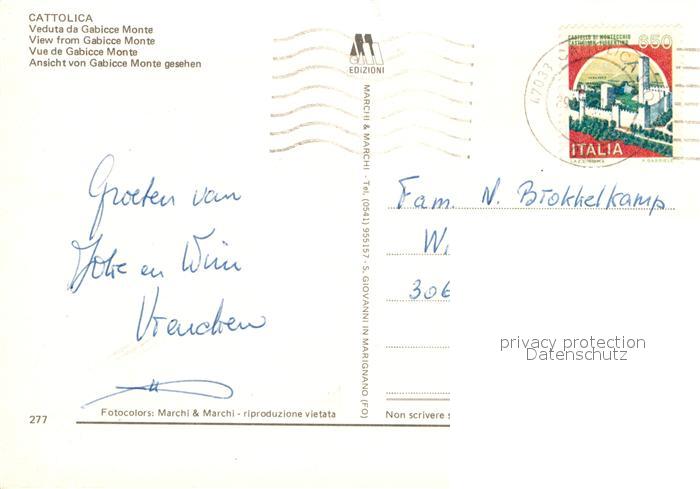 CATTOLICA
Veduta da Gabicce Monte
View from Gabicce Monte
Vue de Gabicce Monte
Ansicht von Gabicce Monte gesehen
EDIZIONI
MARCHI & MARCHI - Tel. (0541) 955157 - S. GIOVANNI IN MARIGNANO (FO)
CASTELLO DI MONTECCHIO
CASTIGLION FIORENTINO
650
47033 CATTOLICA
ITALIA
Groeten van
en Wim
Fam. N. Brokkelkamp
W
306
privacy protection
Datenschutz
277
Fotocolors: Marchi & Marchi - riproduzione vietata
Non scrivere s